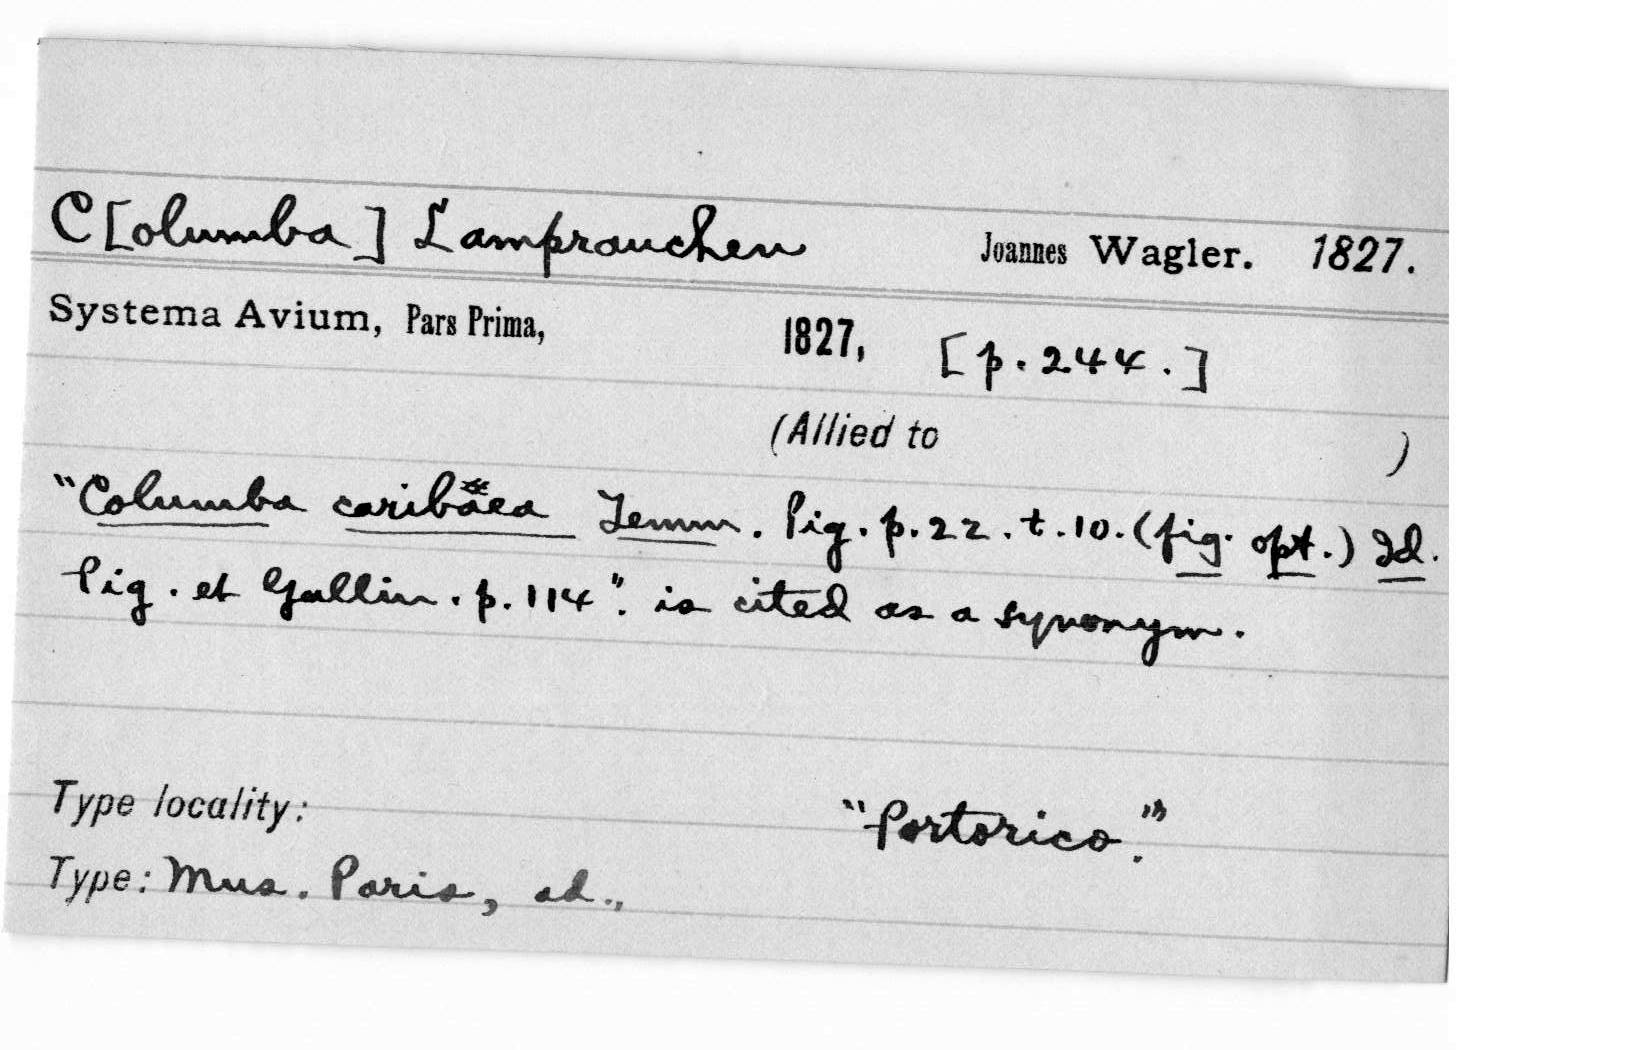 C[olumba] Lamprauchen Joannes Wagler. 1827.
Systema Avium, Pars Prima, 1827, [p. 244.]
(Allied to )
"Columba caribäea Temm. Pig. p. 22. t. 10. (fig. opt.) Id.
Pig. et Gallin. p. 114". is cited as a synonym.
Type locality: "Portorico."
Type: Mus. Paris, ad.,